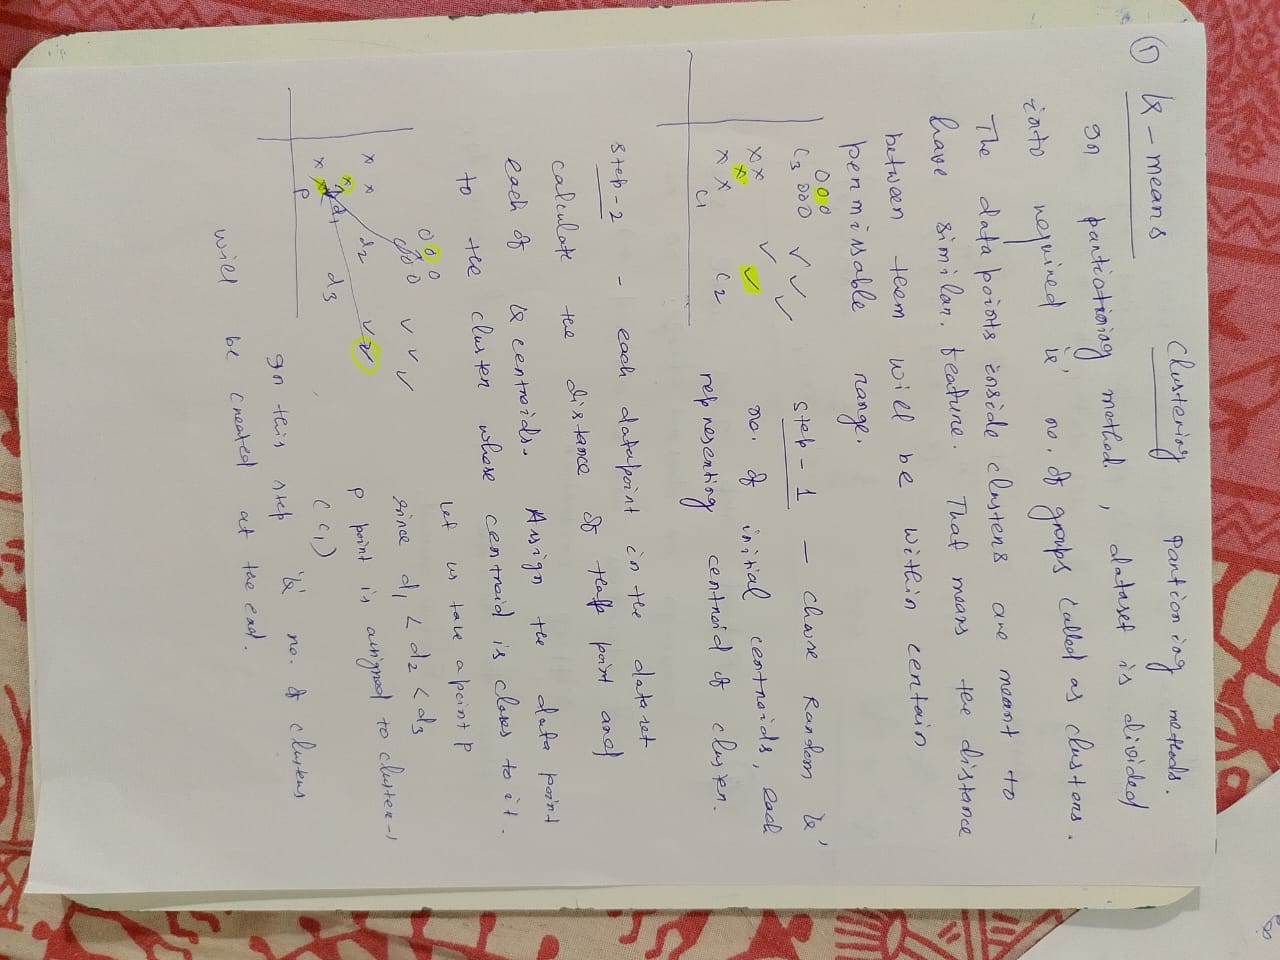 ① K-means Clustering Partioning methods.
In partiotioning method, dataset is divided
into required 'k' no. of groups called as clusters.
The data points inside clusters are meant to
have similar feature. That means the distance
between them will be within certain
permissable range.
Step-1 — Chose Random 'k'
no. of initial centroids, each
representing centroid of cluster.
C3 000
000
xx
x
x x
C1
C2
Step-2 - each datapoint in the dataset
calculate the distance of that point and
each of k centroids. Assign the data point
to the cluster whose centroid is closes to it.
Let us take a point P
since d1 < d2 < d3
P point is assigned to cluster-1
(C1)
x x
x
x
P
d1
d2
d3
In this step 'k' no. of clusters
will be created at the end.